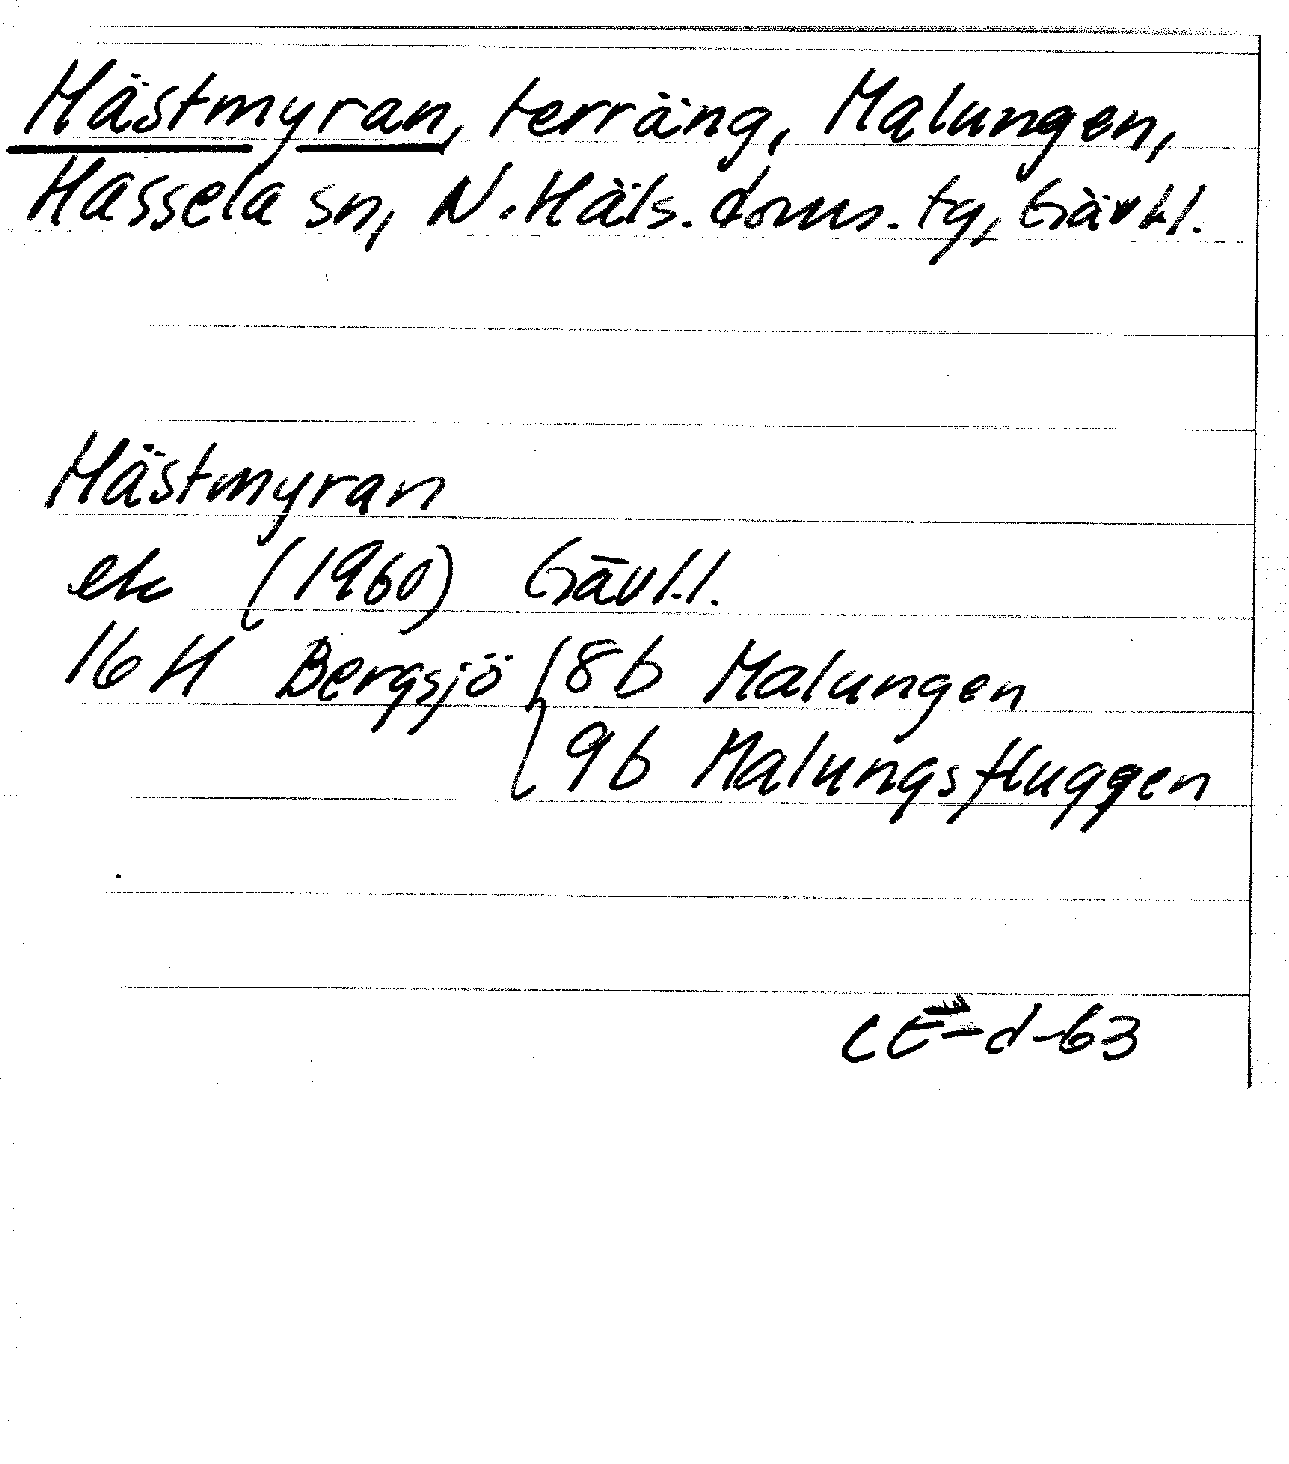 Hästmyran, terräng, Malungen,
Hassela sn, N. Häls. doms. tg, Gävl.l.
Hästmyran
ek (1960) Gävl.l.
16 H Bergsjö 8b Malungen
9b Malungsfluggen
CE-d-63